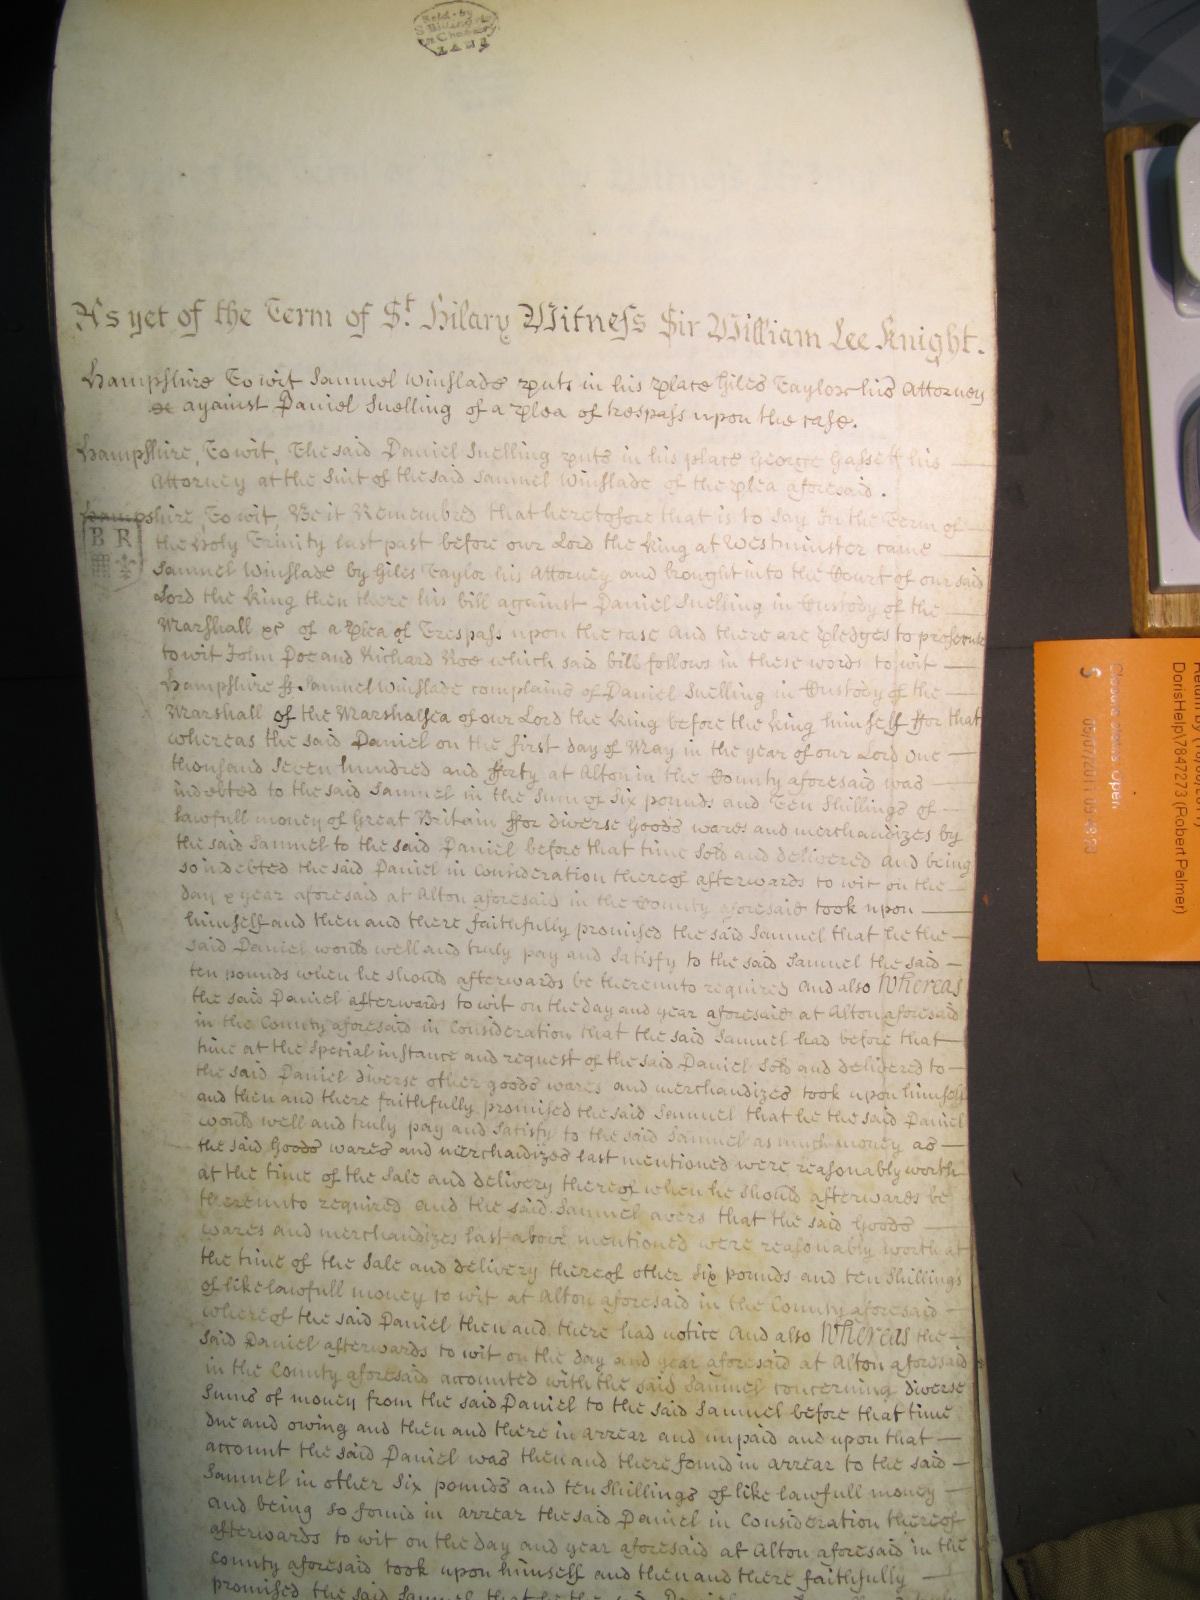 Sold by
S. Billingsley
in Chancery
LANE
As yet of the Term of St. Hilary Witness Sir William Lee Knight.
Hampshire To wit Samuel Winslade puts in his place Giles Taylor his Attorney
against Daniel Snelling of a plea of trespass upon the case.
Hampshire, To wit, The said Daniel Snelling puts in his place George Gassett his
Attorney at the Suit of the said Samuel Winslade of the plea aforesaid.
Hampshire, To wit, Be it Remembred that heretofore that is to say In the Term of
B R
the Holy Trinity last past before our Lord the King at Westminster came
Samuel Winslade by Giles Taylor his Attorney and brought into the Court of our said
Lord the King then there his bill against Daniel Snelling in Custody of the
Marshall &c of a Plea of Trespass upon the case And there are pledges to prosecute
to wit John Doe and Richard Roe which said bill follows in these words to wit
Hampshire ss Samuel Winslade complains of Daniel Snelling in Custody of the
Marshall of the Marshalsea of our Lord the King before the King himself ffor that
whereas the said Daniel on the first day of May in the year of our Lord One
thousand Seven hundred and fforty at Alton in the County aforesaid was
indebted to the said Samuel in the Sum of Six pounds and Ten Shillings of
lawfull money of Great Britain ffor diverse Goods wares and merchandizes by
the said Samuel to the said Daniel before that time Sold and delivered And being
so indebted the said Daniel in Consideration thereof afterwards to wit on the
day & year aforesaid at Alton aforesaid in the County aforesaid took upon
himself and then and there faithfully promised the said Samuel that he the
said Daniel would well and truly pay and Satisfy to the said Samuel the said
ten pounds when he should afterwards be thereunto required And also Whereas
the said Daniel afterwards to wit on the day and year aforesaid at Alton aforesaid
in the County aforesaid in Consideration that the said Samuel had before that
time at the Special instance and request of the said Daniel Sold and delivered to
the said Daniel diverse other goods wares and merchandizes took upon himself
and then and there faithfully promised the said Samuel that he the said Daniel
would well and truly pay and Satisfy to the said Samuel as much money as
the said Goods wares and merchandizes last mentioned were reasonably worth
at the time of the Sale and delivery thereof when he should afterwards be
thereunto required and the said Samuel avers that the said Goods
wares and merchandizes last above mentioned were reasonably worth at
the time of the Sale and delivery thereof other Six pounds and ten Shillings
of like lawfull money to wit at Alton aforesaid in the County aforesaid
whereof the said Daniel then and there had notice And also Whereas the
said Daniel afterwards to wit on the day and year aforesaid at Alton aforesaid
in the County aforesaid accounted with the said Samuel concerning diverse
Sums of money from the said Daniel to the said Samuel before that time
due and owing and then and there in arrear and unpaid and upon that
account the said Daniel was then and there found in arrear to the said
Samuel in other Six pounds and ten Shillings of like lawfull money
and being so found in arrear the said Daniel in Consideration thereof
afterwards to wit on the day and year aforesaid at Alton aforesaid in the
County aforesaid took upon himself and then and there faithfully
promised the said Samuel that he the said Daniel
DorisHelp\7847273 (Robert Palmer)